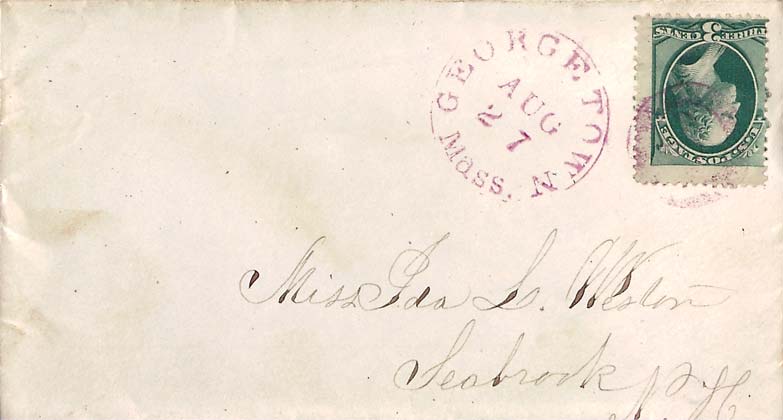 GEORGETOWN
AUG
27
Mass.
3
U.S. POSTAGE
Miss Ida L. Weston
Seabrook N.H.